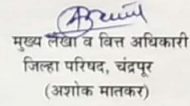 मुख्य लेखा व वित्त अधिकारी
जिल्हा परिषद, चंद्रपूर
(अशोक मातकर)